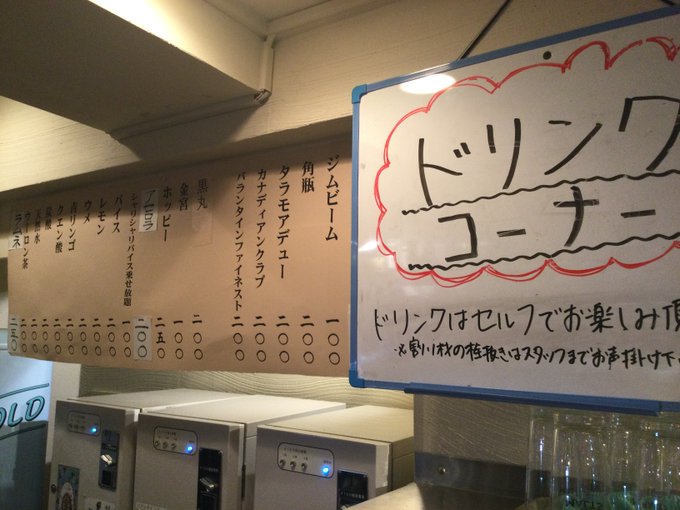 ジムビーム 一〇〇
角瓶 二〇〇
タラモアデュー 二〇〇
カナディアンクラブ 二〇〇
バランタインファイネスト 二〇〇
黒丸 二〇〇
金宮 一〇〇
ホッピー 二五〇
アセロラ 二〇〇
シャリシャリバイス乗せ放題
バイス 一〇〇
レモン 一〇〇
ウメ 一〇〇
青リンゴ 一〇〇
クエン酸 一〇〇
炭酸 一〇〇
天然水 一〇〇
ウーロン茶 一〇〇
ラムネ
ドリンク
コーナー
ドリンクはセルフでお楽しみ頂
※割り材の栓抜きはスタッフまでお声掛け下
OLD